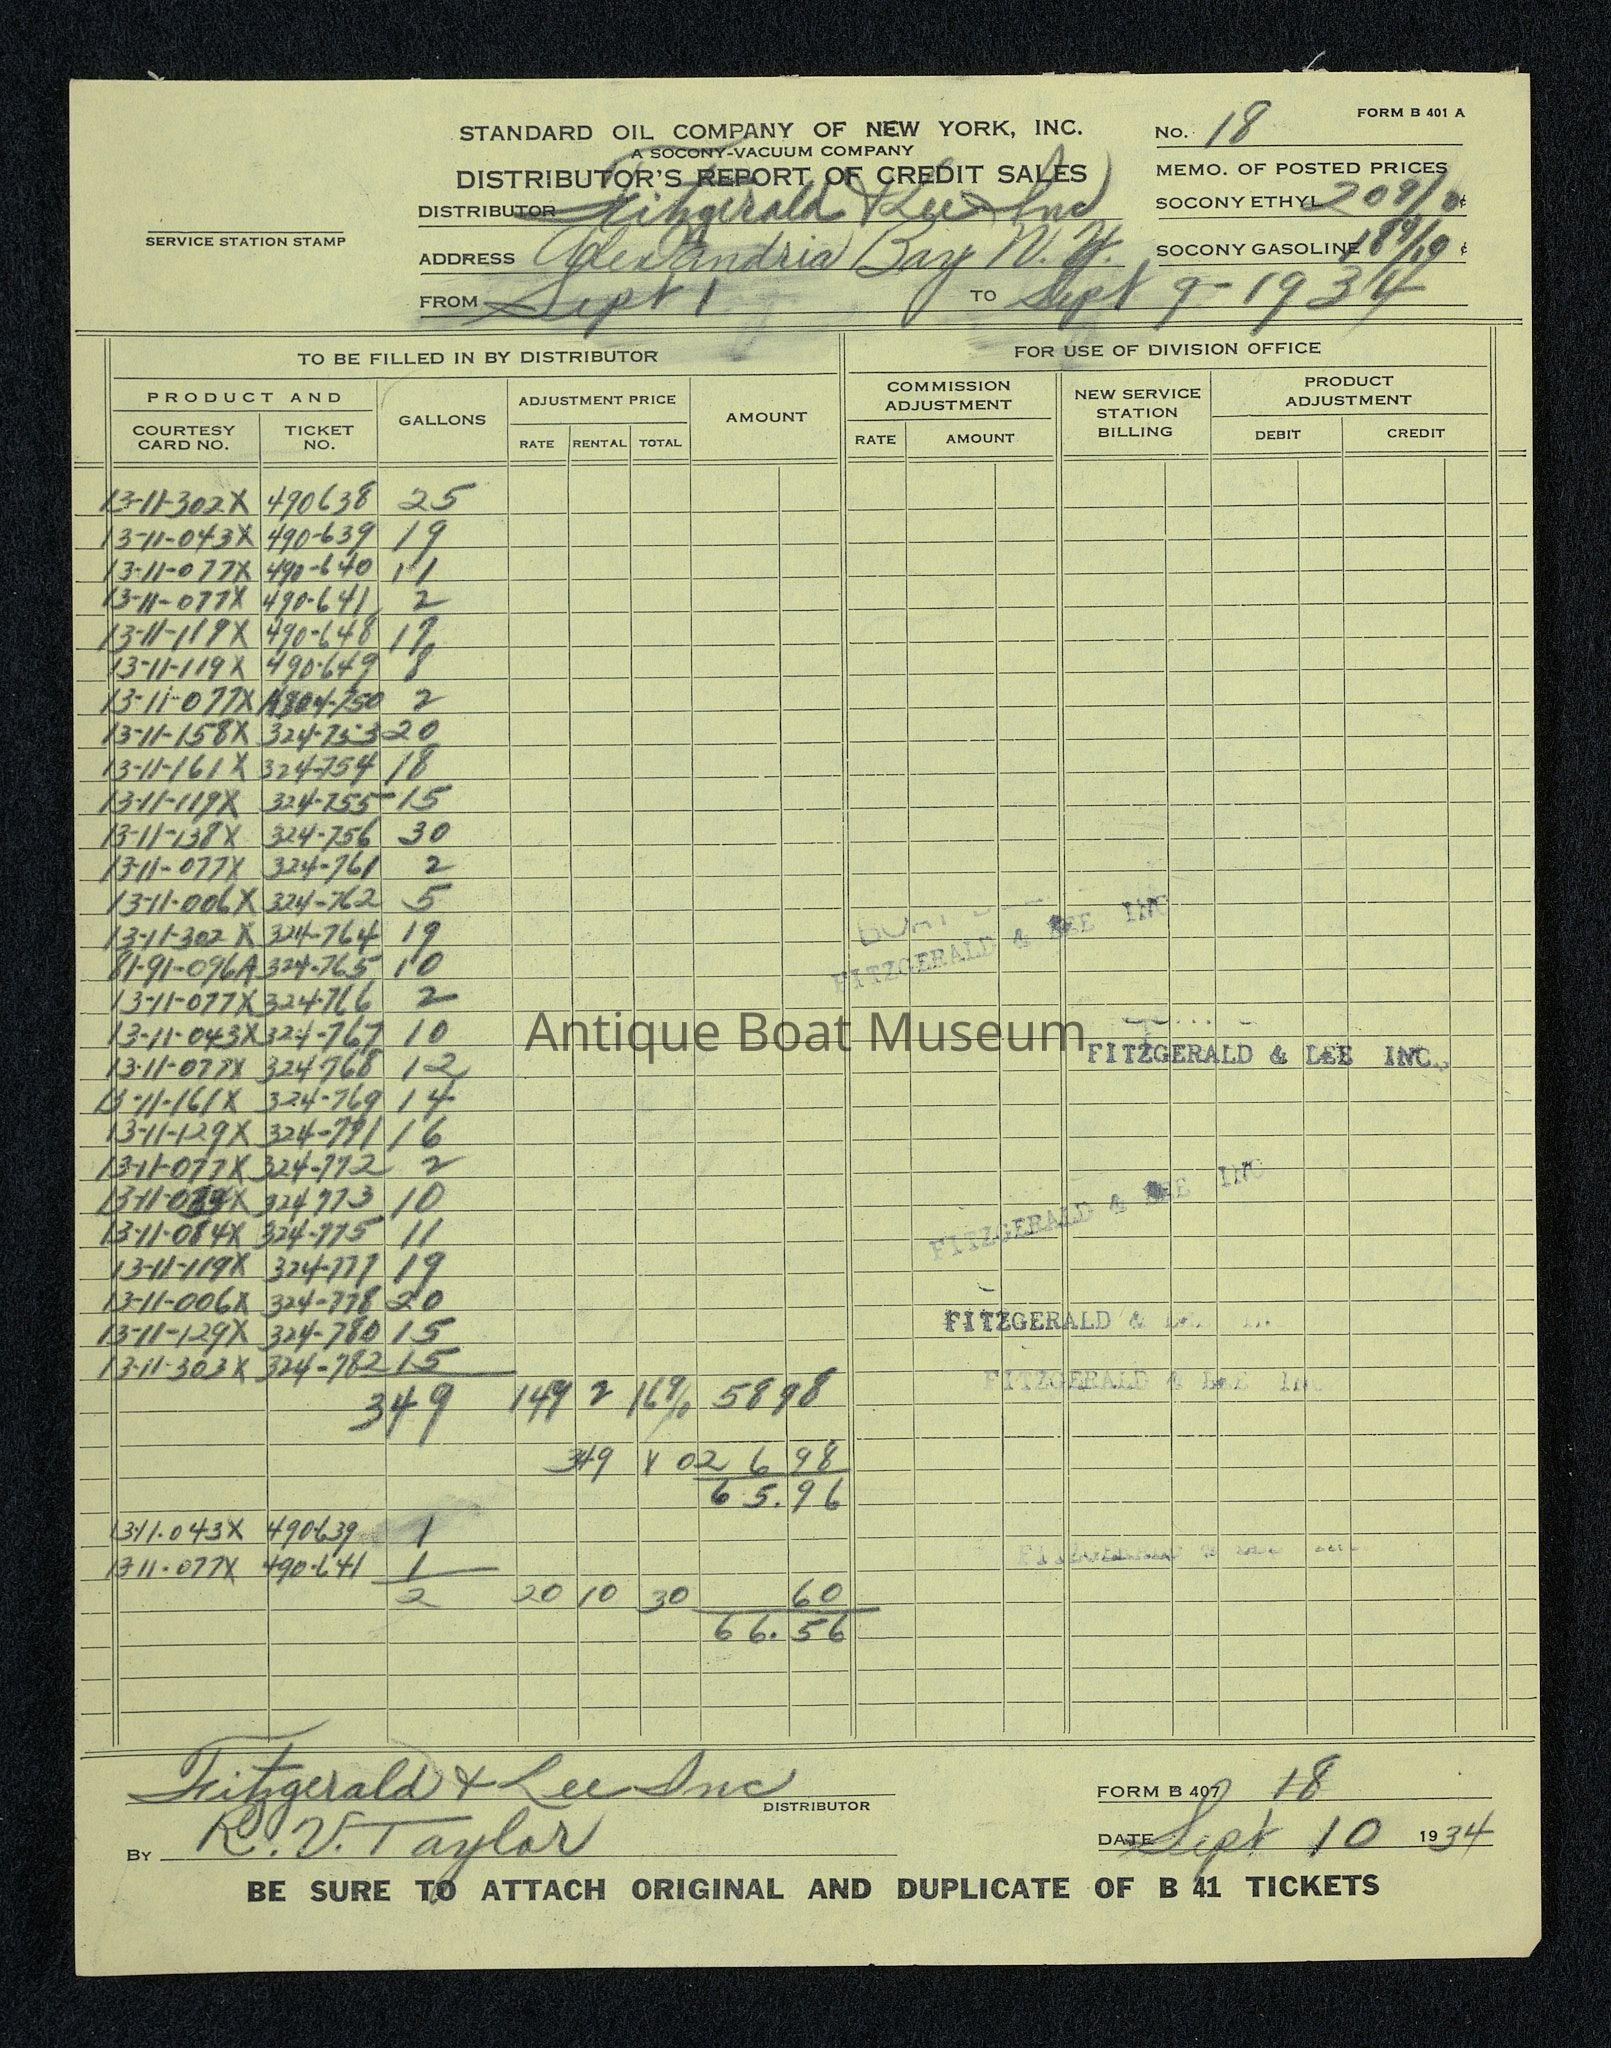 FORM B 401 A
STANDARD OIL COMPANY OF NEW YORK, INC.
No. 18
A SOCONY-VACUUM COMPANY
DISTRIBUTOR'S REPORT OF CREDIT SALES
MEMO. OF POSTED PRICES
DISTRIBUTOR Fitzgerald & Lee Inc
SOCONY ETHYL 20 9/10 ¢
SERVICE STATION STAMP
ADDRESS Alexandria Bay N. Y.
SOCONY GASOLINE 18 9/10 ¢
FROM Sept 1 TO Sept 9-1934
TO BE FILLED IN BY DISTRIBUTOR
FOR USE OF DIVISION OFFICE
PRODUCT AND
COURTESY CARD NO.
TICKET NO.
GALLONS
ADJUSTMENT PRICE
RATE RENTAL TOTAL
AMOUNT
COMMISSION ADJUSTMENT
RATE AMOUNT
NEW SERVICE STATION BILLING
PRODUCT ADJUSTMENT
DEBIT CREDIT
13-11-302X 490638 25
13-11-043X 490-639 19
13-11-077X 490-640 11
13-11-077X 490-641 2
13-11-119X 490-648 17
13-11-119X 490-649 8
13-11-077X 2
13-11-158X 324-753 20
13-11-161X 324-754 18
13-11-119X 324-755 15
13-11-138X 324-756 30
13-11-077X 324-761 2
13-11-006X 324-762 5
13-11-302X 324-764 19
81-91-096A 324-765 10
13-11-077X 324-766 2
13-11-043X 324-767 10
13-11-077X 324-768 12
13-11-161X 324-769 14
13-11-129X 324-771 16
13-11-077X 324-772 2
13-11-084X 324773 10
13-11-084X 324-775 11
13-11-119X 324-777 19
13-11-006X 324-778 20
13-11-129X 324-780 15
13-11-303X 324-782 15
349 149 2 169/10 58 98
349 X 02 6 98
65.96
13-11-043X 490639 1
13-11-077X 490-641 1
2 20 10 30 60
66.56
FITZGERALD & LEE INC
Antique Boat Museum
FITZGERALD & LEE INC.
FITZGERALD & LEE INC
FITZGERALD & LEE
FITZGERALD & LEE INC
Fitzgerald & Lee Inc
DISTRIBUTOR
FORM B 407 18
By R. V. Taylor
DATE Sept 10 1934
BE SURE TO ATTACH ORIGINAL AND DUPLICATE OF B 41 TICKETS